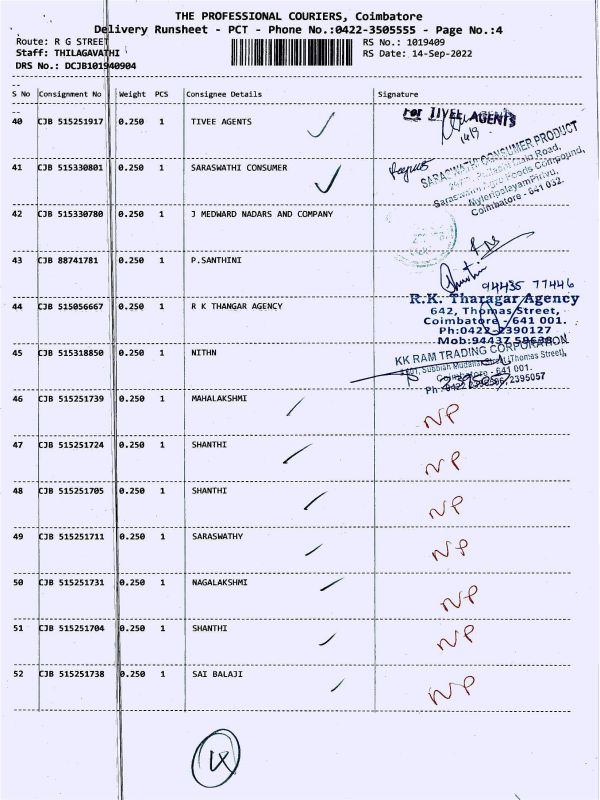 THE PROFESSIONAL COURIERS, Coimbatore
Delivery Runsheet - PCT - Phone No.:0422-3505555 - Page No.:4
Route: R G STREET
RS No.: 1019409
Staff: THILAGAVATHI
RS Date: 14-Sep-2022
DRS No.: DCJB101940904
S No Consignment No Weight PCS Consignee Details Signature
40 CJB 515251917 0.250 1 TIVEE AGENTS
For TIVEE AGENTS
14/9
41 CJB 515330801 0.250 1 SARASWATHI CONSUMER
SARASWATHI CONSUMER PRODUCT
Saraswathi Agro Foods Compound,
Coimbatore - 641 032.
42 CJB 515330780 0.250 1 J MEDWARD NADARS AND COMPANY
43 CJB 88741781 0.250 1 P.SANTHINI
94435 77446
44 CJB 515056667 0.250 1 R K THANGAR AGENCY
R.K. Tharagar Agency
642, Thomas Street,
Coimbatore - 641 001.
Ph:0422-2390127
Mob:94437 59638
45 CJB 515318850 0.250 1 NITHN
KK RAM TRADING CORPORATION
(Thomas Street),
Coimbatore - 641 001.
2395057
46 CJB 515251739 0.250 1 MAHALAKSHMI NP
47 CJB 515251724 0.250 1 SHANTHI NP
48 CJB 515251705 0.250 1 SHANTHI NP
49 CJB 515251711 0.250 1 SARASWATHY NP
50 CJB 515251731 0.250 1 NAGALAKSHMI NP
51 CJB 515251704 0.250 1 SHANTHI NP
52 CJB 515251738 0.250 1 SAI BALAJI NP